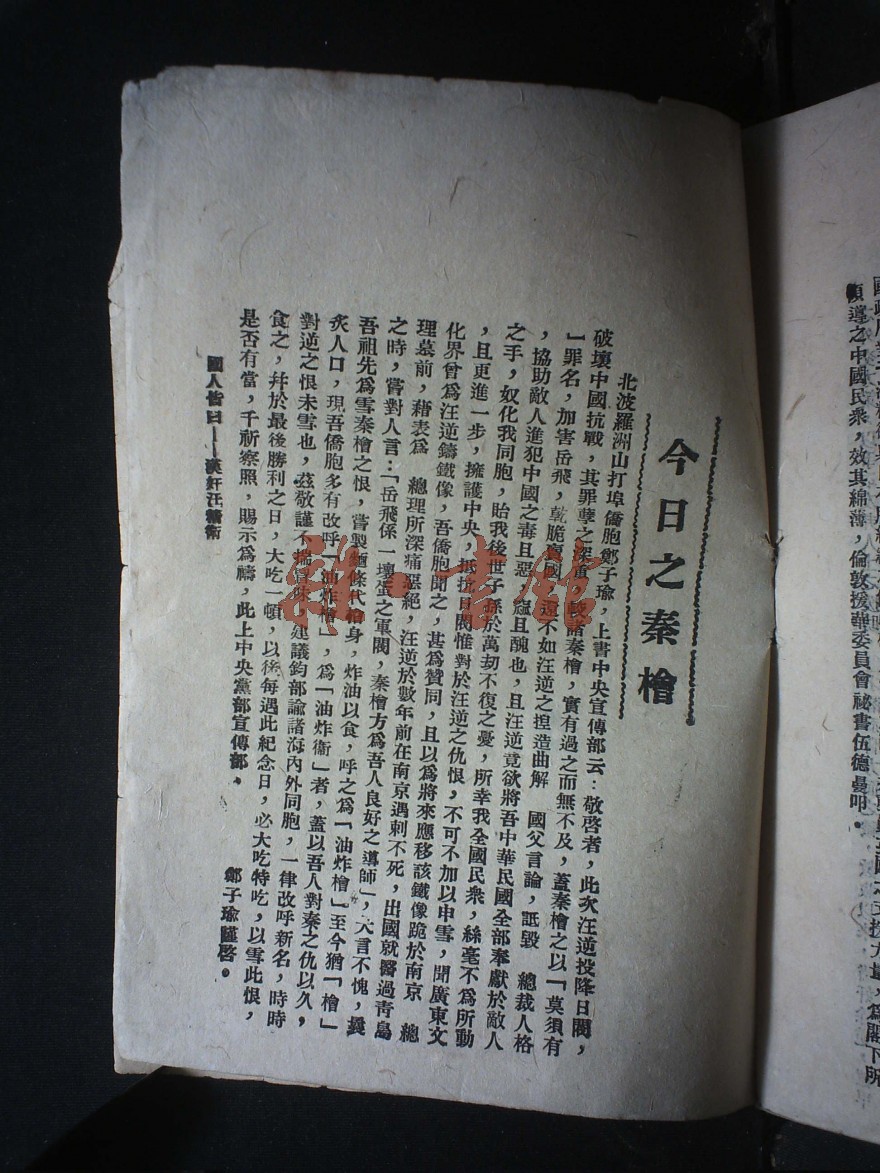 國政府
領導之中國民衆，效其綿薄，倫敦援華委員會祕書伍德曼叩。
今日之秦檜
北波羅洲山打埠僑胞鄭子瑜，上書中央宣傳部云：敬啓者，此次汪逆投降日閥，
破壞中國抗戰，其罪孽之深重，較諸秦檜，實有過之而無不及，蓋秦檜之以「莫須有
」罪名，加害岳飛，乾脆賣國，還不如汪逆之揑造曲解　國父言論，詆毀　總裁人格
，協助敵人進犯中國之毒且惡，寃且醜也，且汪逆竟欲將吾中華民國全部奉獻於敵人
之手，奴化我同胞，貽我後世子孫於萬刼不復之憂，所幸我全國民衆，絲毫不為所動
，且更進一步，擁護中央，抵抗日閥惟對於汪逆之仇恨，不可不加以申雪，聞廣東文
化界曾為汪逆鑄鐵像，吾僑胞聞之，甚為贊同，且以為將來應移該鐵像跪於南京　總
理墓前，藉表為　總理所深痛惡絕，汪逆於數年前在南京遇刺不死，出國就醫過靑島
之時，嘗對人言：「岳飛係一壞蛋之軍閥，秦檜方為吾人良好之導師」，大言不愧，
吾祖先為雪秦檜之恨，嘗製麵條代檜身，炸油以食，呼之為「油炸檜」至今猶「檜」
炙人口，現吾僑胞多有改呼「油炸檜」，為「油炸衞」者，蓋以吾人對秦之仇以久，
對逆之恨未雪也，茲敬謹不揣冒昧，建議鈞部諭諸海內外同胞，一律改呼新名，時時
食之，幷於最後勝利之日，大吃一頓，以後每遇此紀念日，必大吃特吃，以雪此恨，
是否有當，千祈察照，賜示為禱，此上中央黨部宣傳部。
鄭子瑜謹啓。
國人皆曰——漢奸汪精衞
雜·書館